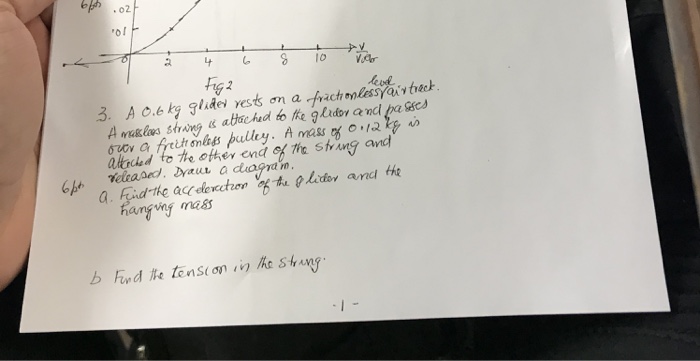 6pts .02
.01
0 2 4 6 8 10 V
Fig 2
3. A 0.6 kg glider rests on a frictionless level air track.
A massless string is attached to the glider and passes
over a frictionless pulley. A mass of 0.12 kg is
attached to the other end of the string and
released. Draw a diagram.
6pts a. Find the acceleration of the glider and the
hanging mass
b Find the tension in the string.
-1-